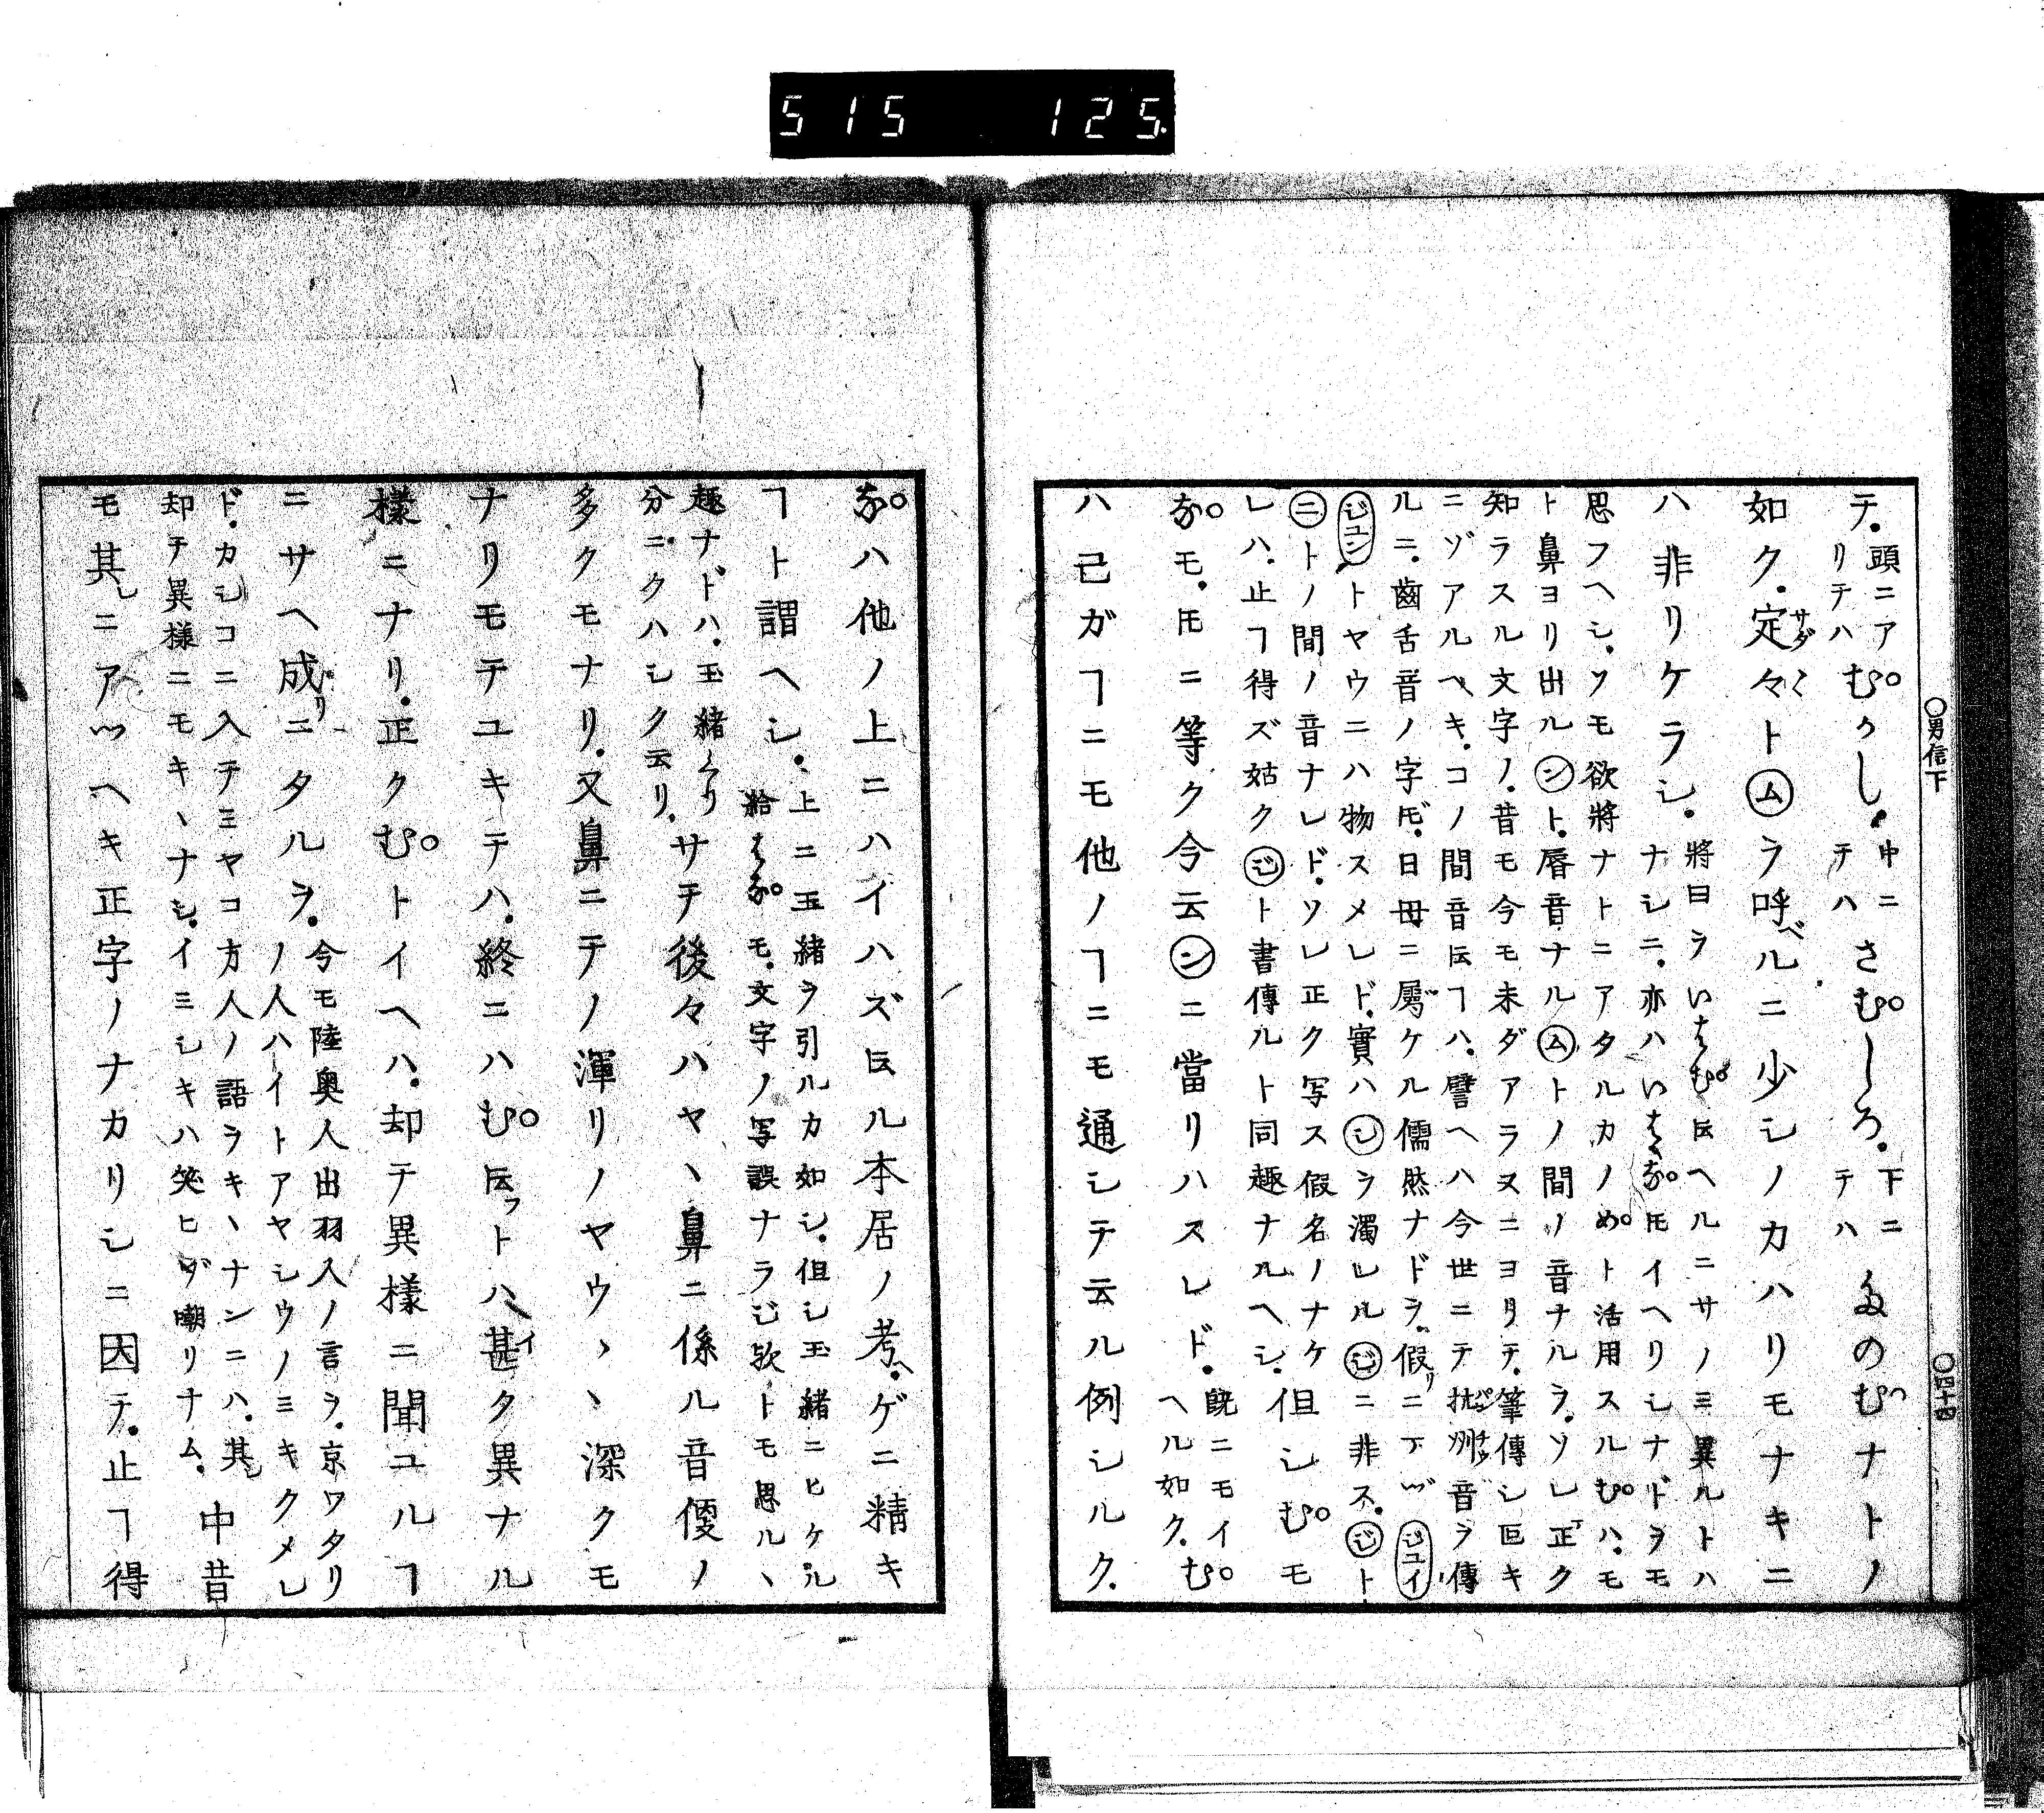 515 125.
○男信下
○四十四
テ。頭ニアリテハむ゚かし。中ニテハさむ゚しろ。下ニテハたのむ゚ナトノ
如ク。定々トムヲ呼ルニ少シノカハリモナキニ
ハ非リケラシ。將曰ヲいはむ゚㐧ヘルニサノミ異ルトハ
ナシニ。亦ハいはな゚𪜈イヘリシナドヲモ
思フヘシ。ソモ欲將ナトニアタルカノめ゚ト活用スルむ゚ハ。モ
ト鼻ヨリ出ルント。唇音ナルムトノ間ノ音ナルヲ。ソレ正ク
知ラスル文字ノ。昔モ今モ未ダアラヌニヨリテ。筆傳シ叵キ
ニゾアルヘキ。コノ間音云ヿハ。譬ヘハ今世ニテ抗州音ヲ傳
ルニ。齒舌音ノ字𪜈。日母ニ屬ケル儒然ナドヲ。假ニ下ヅジユイ
ジユントヤウニハ物スメレド。實ハシヲ濁レルジニ非ス。ジト
ニトノ間ノ音ナレド。ソレ正ク写ス假名ノナケ
レハ。止ヿ得ズ姑クジト書傳ルト同趣ナルヘシ。但シむ゚モ
な゚モ。𪜈ニ等ク今云ンニ當リハスレド。旣ニモイヘル如ク。む゚
ハ己ガヿニモ他ノヿニモ通シテ云ル例シルク。
な゚ハ他ノ上ニハイハズ云ル本居ノ考ヘ。ゲニ精キ
ヿト謂ヘシ。上ニ玉緒ヲ引ルカ如シ。但シ玉緒ニヒケル
給はな゚モ。文字ノ写誤ナラジ欤トモ思ルヽ
趣ナドハ。玉緒クリ
分ニクハシク云リ。サテ後々ハヤヽ鼻ニ係ル音優ノ
多クモナリ。又鼻ニテノ渾リノヤウヽヽ深クモ
ナリモテユキテハ。終ニハむ゚云フトハイ甚タ異ナル
樣ニナリ。正クむ゚トイヘハ。却テ異樣ニ聞ユルヿ
ニサヘ成リニタルヲ。今モ陸奥人出羽人ノ言ヲ。京ワタリ
ノ人ハイトアヤシウノミキクメレ
ド。カシコニ入テミヤコ方人ノ語ラキヽナンニハ。其レ
却テ異樣ニモキヽナシ。イミシキハ笑ヒダ嘲リナム。中昔
モ其レニアツヘキ正字ノナカリシニ因テ。止ヿ得